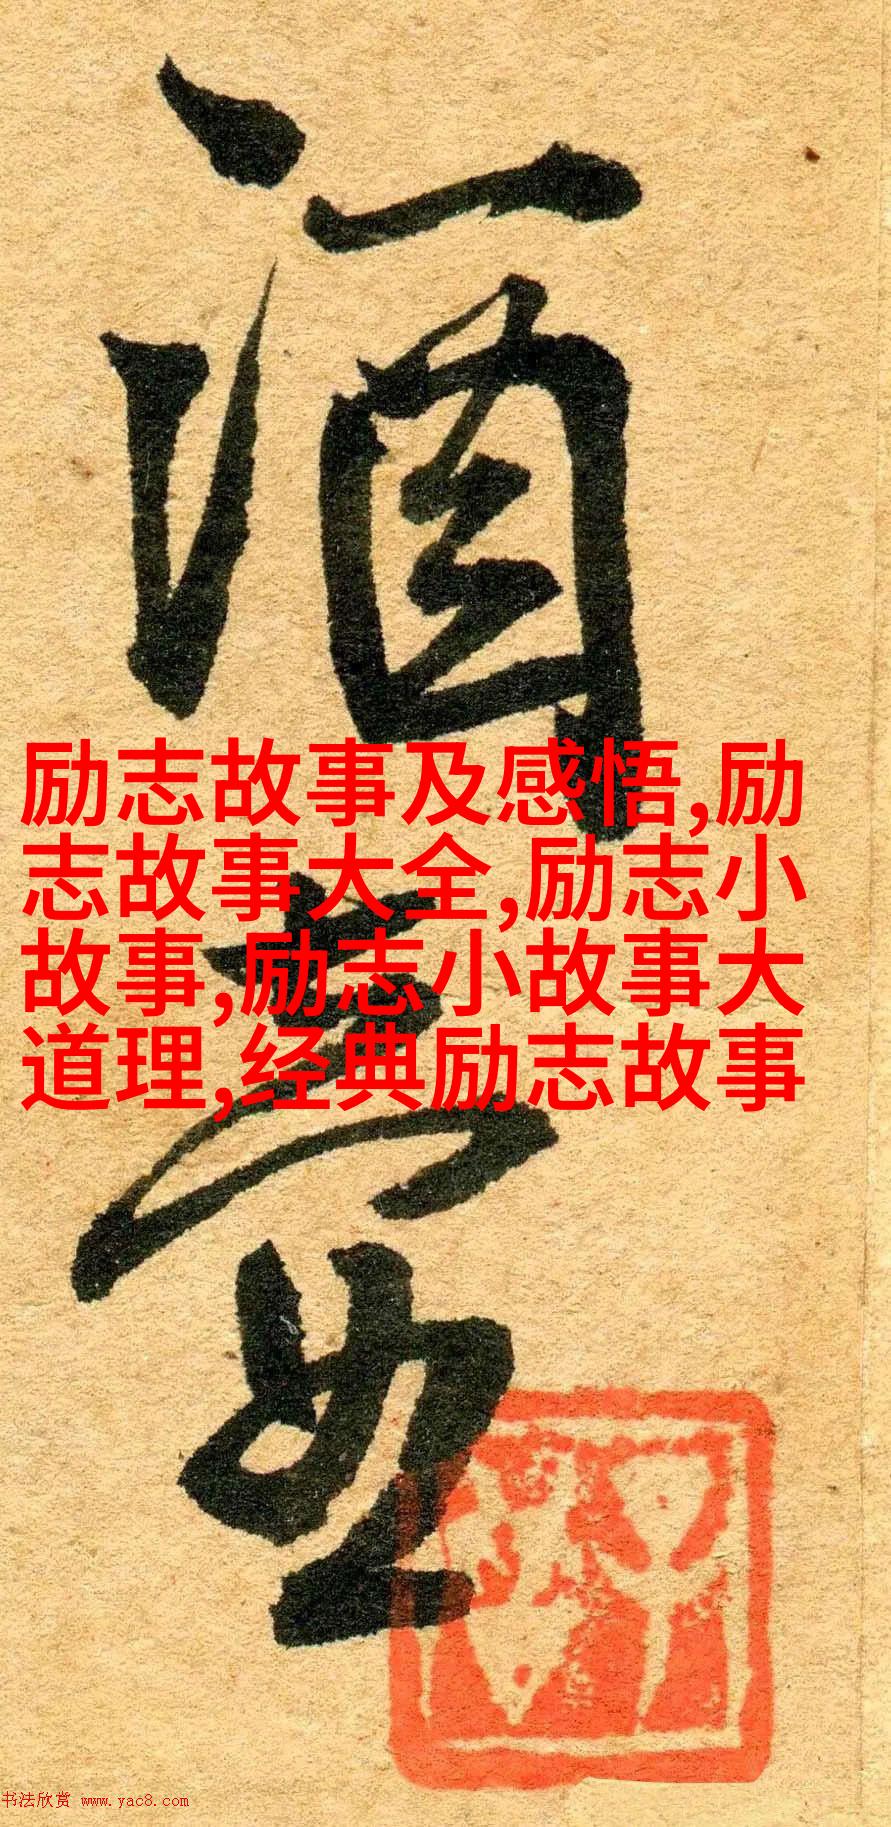 酒
励志故事及感悟,励
志故事大全,励志小
故事,励志小故事大
道理,经典励志故事
书法欣赏 www.yac8.com